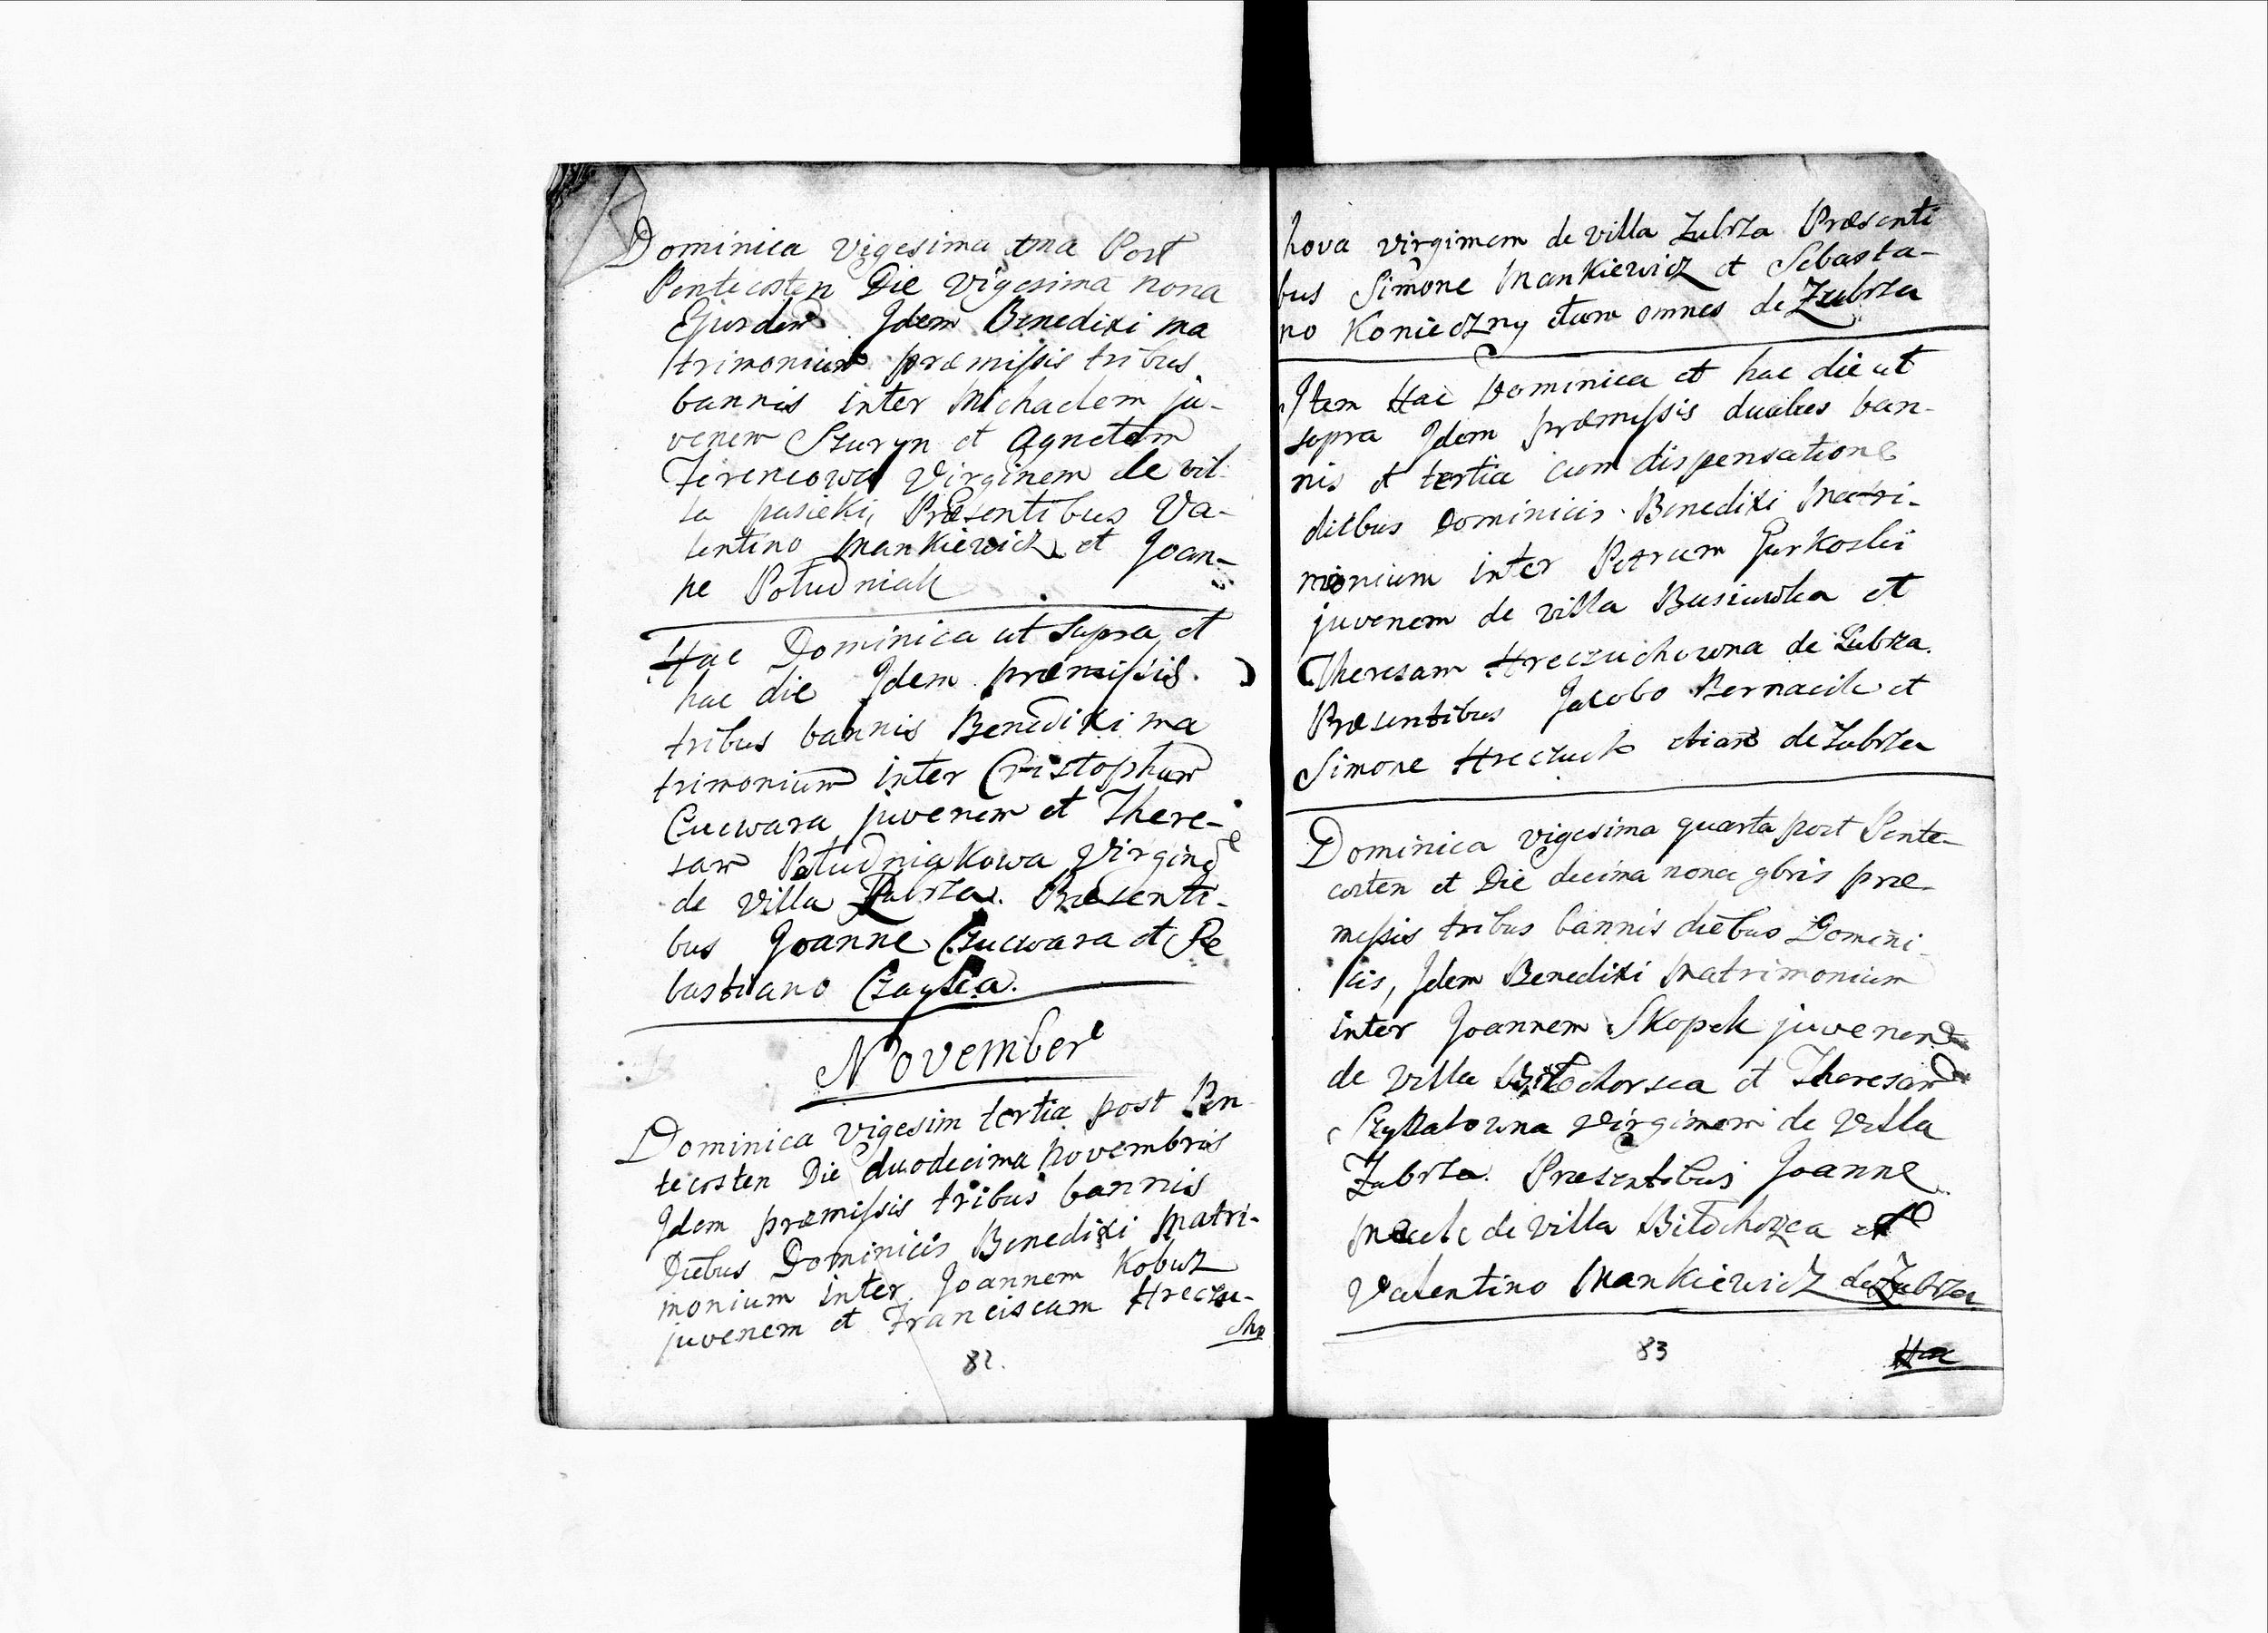 Dominica vigesima una Post
Pentecosten Die Vigesima nona
Ejusdem Idem Benedixi ma
trimonium præmissis tribus
bannis inter Michaelem ju-
venem Szuryn et Agnetem
Ferencowa Virginem de vil-
la pasieki, Præsentibus Va-
lentino Mankiewicz et Joan-
ne Południak
Hac Dominica ut supra et
hac die Idem præmissis
tribus bannis Benedixi ma
trimonium inter Cristophum
Cucwara juvenem et There-
sam Południakowa Virgine
de villa Zubrza. Præsenti-
bus Joanne Czucwara et Se
bastiano Czayka.
November
Dominica vigesim tertia post Pen
tecosten Die duodecima novembris
Idem præmissis tribus bannis
Diebus Dominicis Benedixi Matri-
monium inter Joannem Kobusz
juvenem et Franciscam Hreczu-
cho
82.
hova virginem de villa Zubrza Præsenti
bus Simone Mankiewicz et Sebastia-
no Konieczny etiam omnes de Zubrza
Item Hac Dominica et hac die ut
sopra Idem præmissis duabus ban-
nis et tertia cum dispensatione
diebus Dominicis Benedixi Matri-
monium inter Petrum Gurkoski
juvenem de villa Basiuwka et
Theresam Hreczuchowna de Zubrza.
Præsentibus Jacobo Bernacik et
Simone Hreczuch etiam de Zubrza
Dominica vigesima quarta post Pente-
costen et Die decima nona 9bris præ-
missis tribus bannis diebus Domini-
cis, Idem Benedixi Matrimonium
inter Joannem Skopek juvenem
de villa Biłochorsca et Theresam
Virginem de Villa
Zubrza. Præsentibus Joanne
de villa Biłohorzca et
Valentino Mankiewicz de Zubrza
83
Hac